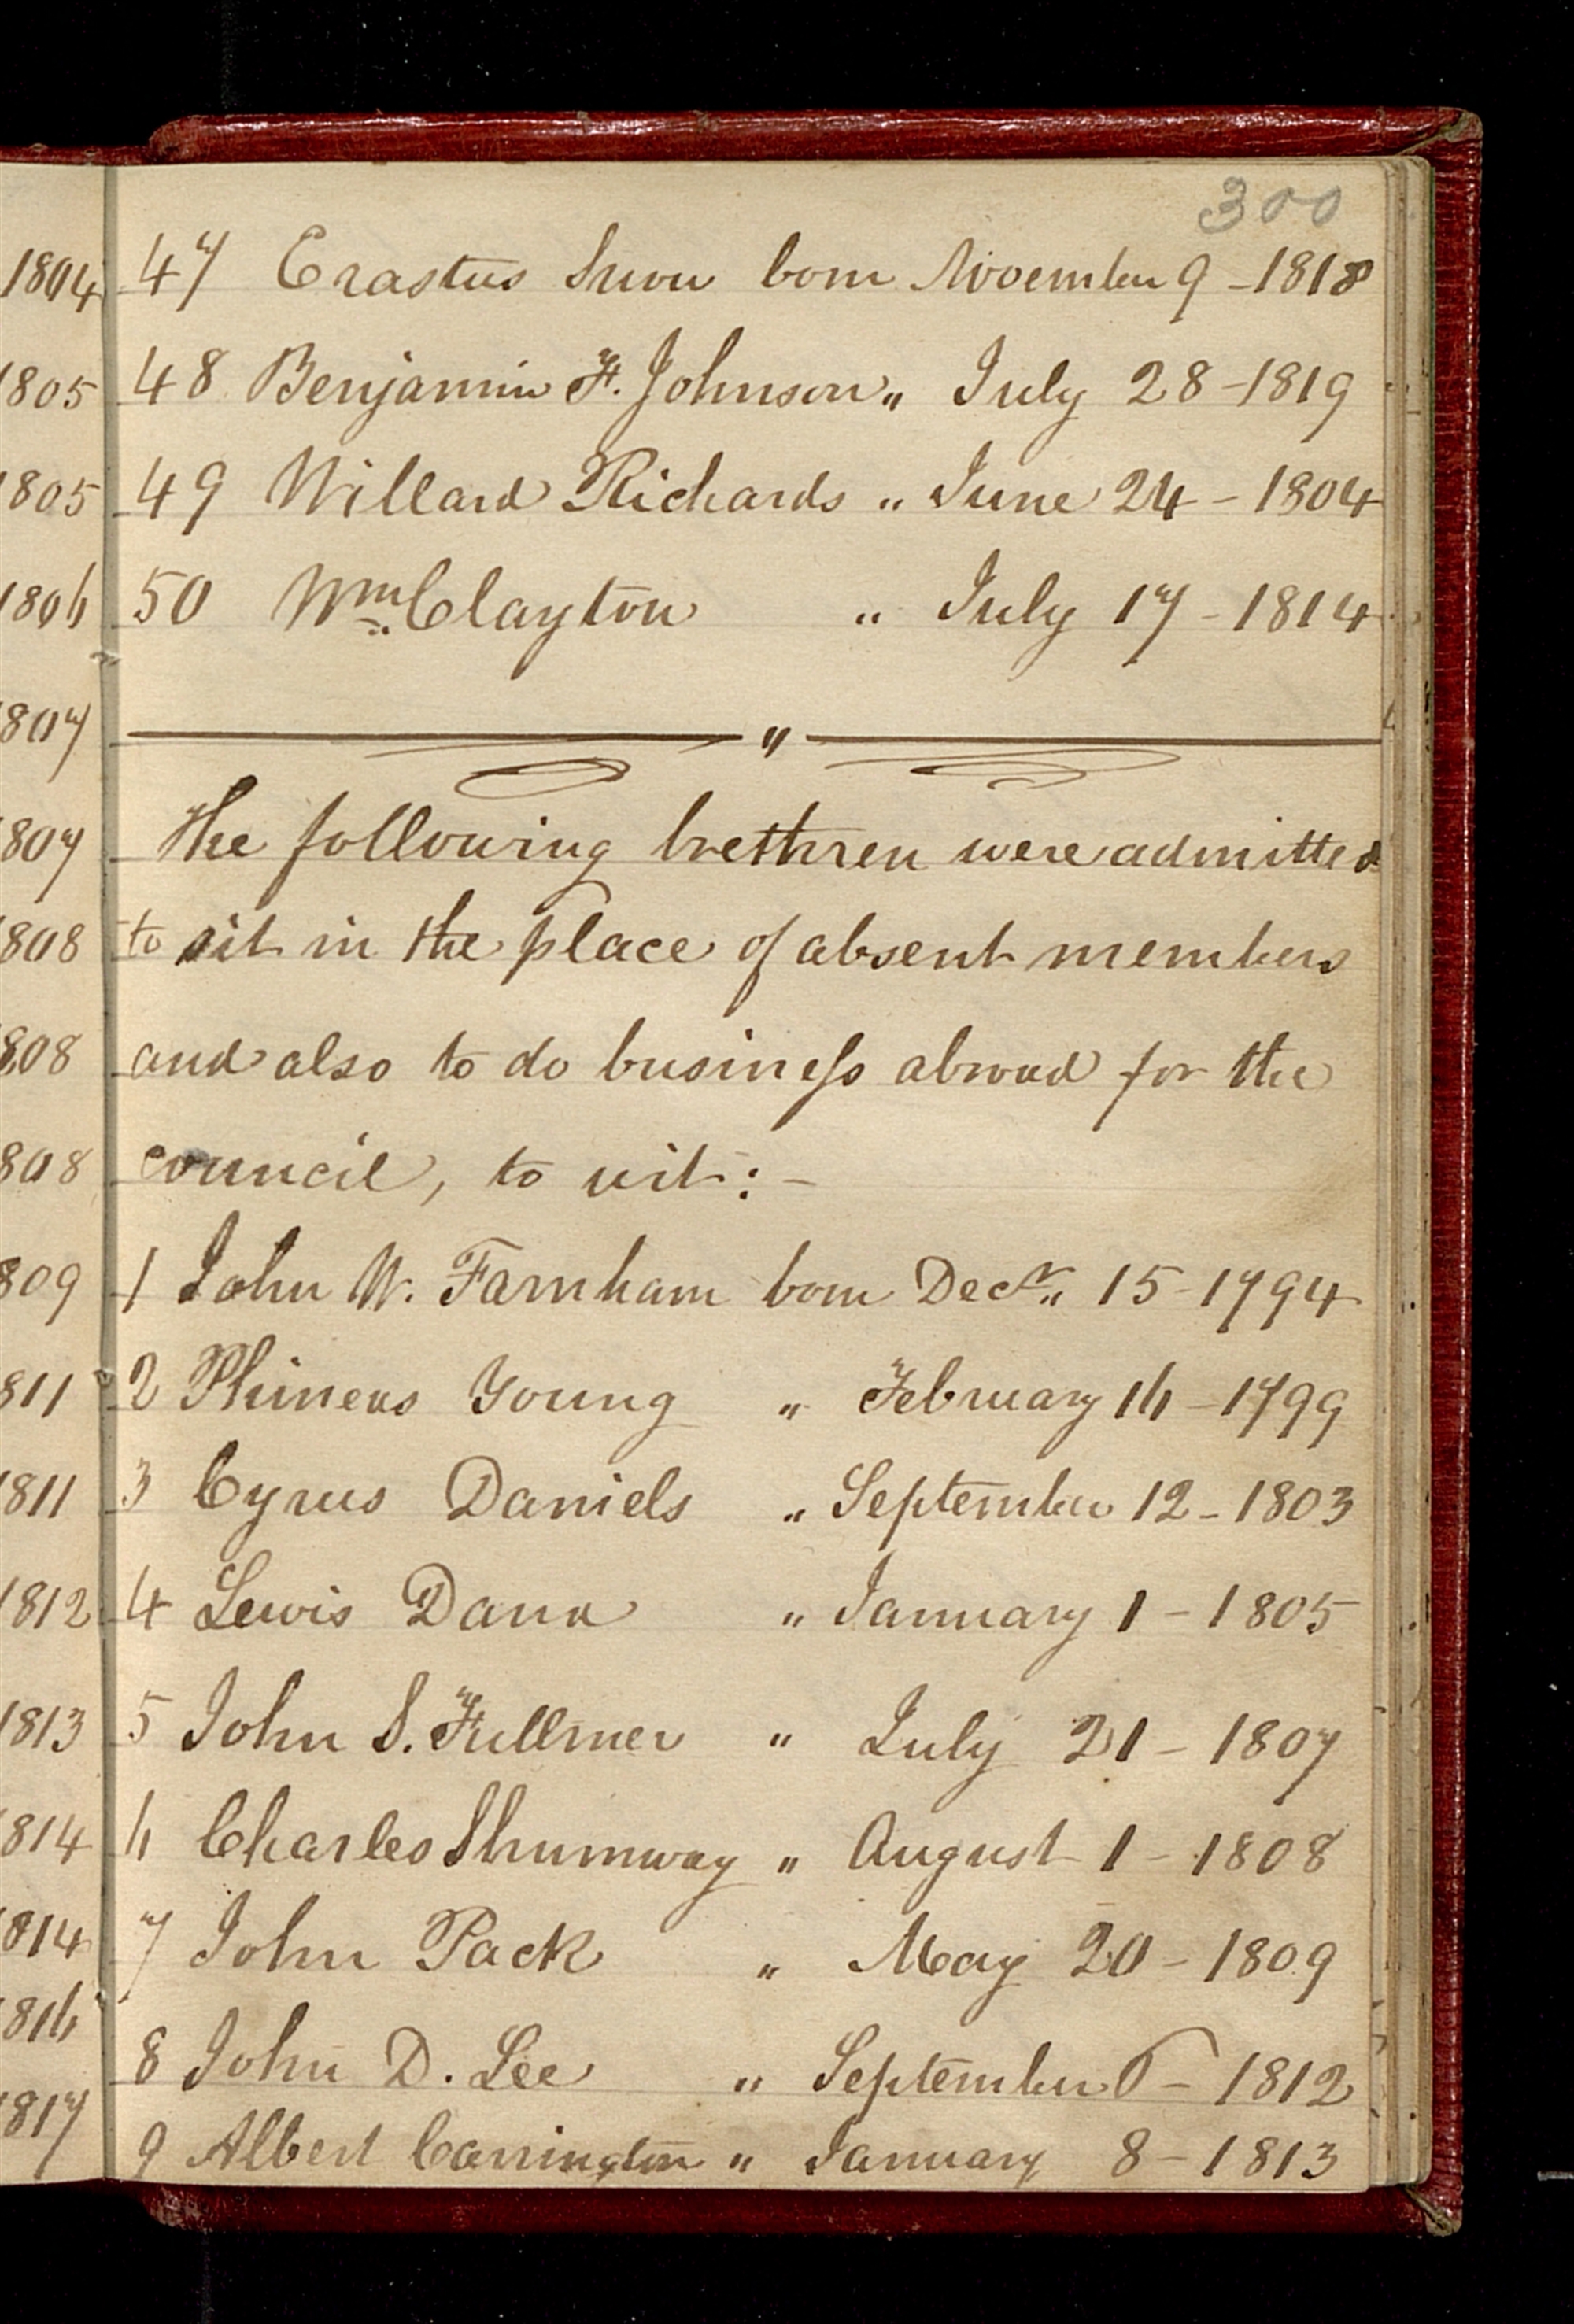 300
1804
47 Erastus Snow born November 9 - 1818
1805
48 Benjamin F. Johnson „ July 28 - 1819
1805
49 Willard Richards „ June 24 - 1804
1806
50 Wm. Clayton „ July 17 - 1814
1807
„
The following brethren were admitted
807
to sit in the place of absent members
808
and also to do business abroad for the
808
council, to wit: -
808
1 John W. Farnham born Decr. „ 15 - 1794
809
2 Phineas Young „ February 16 - 1799
811
3 Cyrus Daniels „ September 12 - 1803
1811
4 Lewis Dana „ January 1 - 1805
1812
5 John S. Fullmer „ July 21 - 1807
1813
6 Charles Shumway „ August 1 - 1808
814
7 John Pack „ May 20 - 1809
814
816
8 John D. Lee „ September 6 - 1812
1817
9 Albert Carrington „ January 8 - 1813